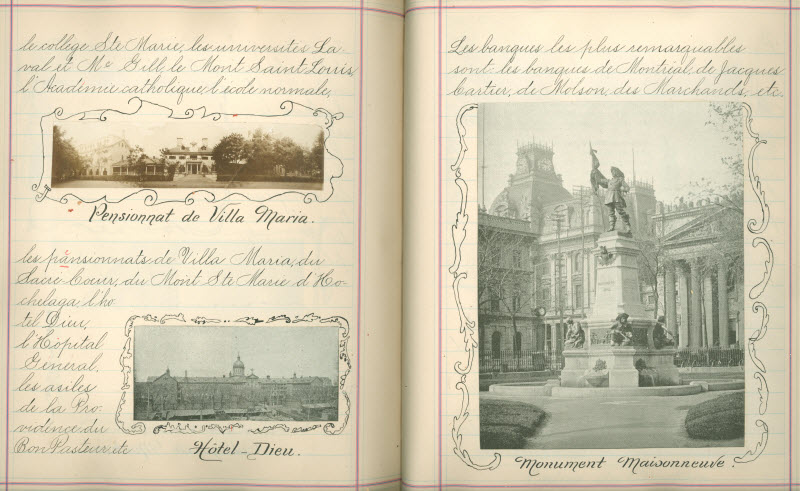 le collège Ste Marie, les universités La-
val et Mc Gill, le Mont Saint Louis,
l'Académie catholique, l'école normale,
Pensionnat de Villa Maria.
les pansionnats de Villa Maria, du
Sacré Coeur, du Mont Ste Marie d'Ho-
chelaga, l'hô
tel Dieu,
l'Hôpital
Général,
les asiles
de la Pro-
vidence, du
Bon Pasteur, etc
Hôtel-Dieu.
Les banques les plus remarquables
sont les banques de Montréal, de Jacques
Cartier, de Molson, des Marchands, etc.
Monument Maisonneuve.